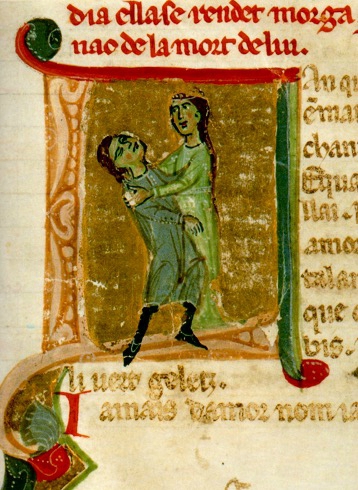 dia ella se rendet morga
nao de la mort de lui.
An qu
ēmai
chan
Equa
llai.
amor
talai
que
vis.
li vers geletz.
Iamais damor nom ia